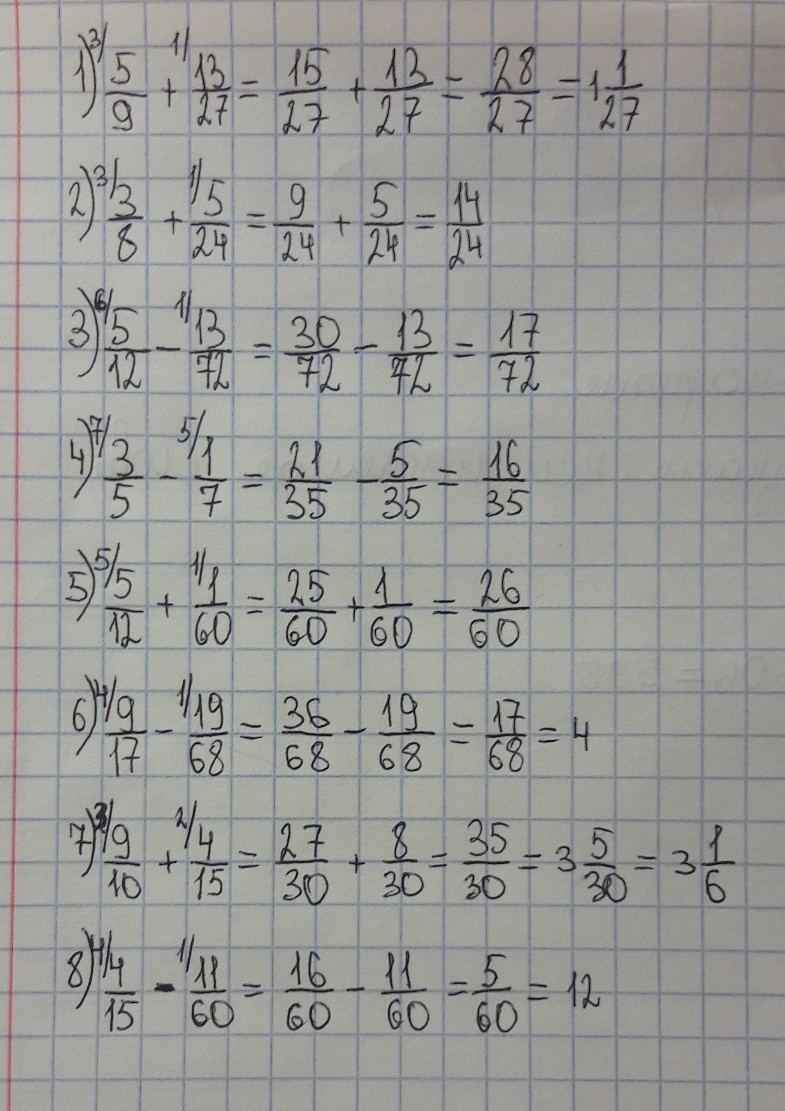 1) ³/5/9 + ¹/13/27 = 15/27 + 13/27 = 28/27 = 1 1/27
2) ³/3/8 + ¹/5/24 = 9/24 + 5/24 = 14/24
3) ⁶/5/12 − ¹/13/72 = 30/72 − 13/72 = 17/72
4) ⁷/3/5 − ⁵/1/7 = 21/35 − 5/35 = 16/35
5) ⁵/5/12 + ¹/1/60 = 25/60 + 1/60 = 26/60
6) ⁴/9/17 − ¹/19/68 = 36/68 − 19/68 = 17/68 = 4
7) ³/9/10 + ²/4/15 = 27/30 + 8/30 = 35/30 = 3 5/30 = 3 1/6
8) ⁴/4/15 − ¹/11/60 = 16/60 − 11/60 = 5/60 = 12